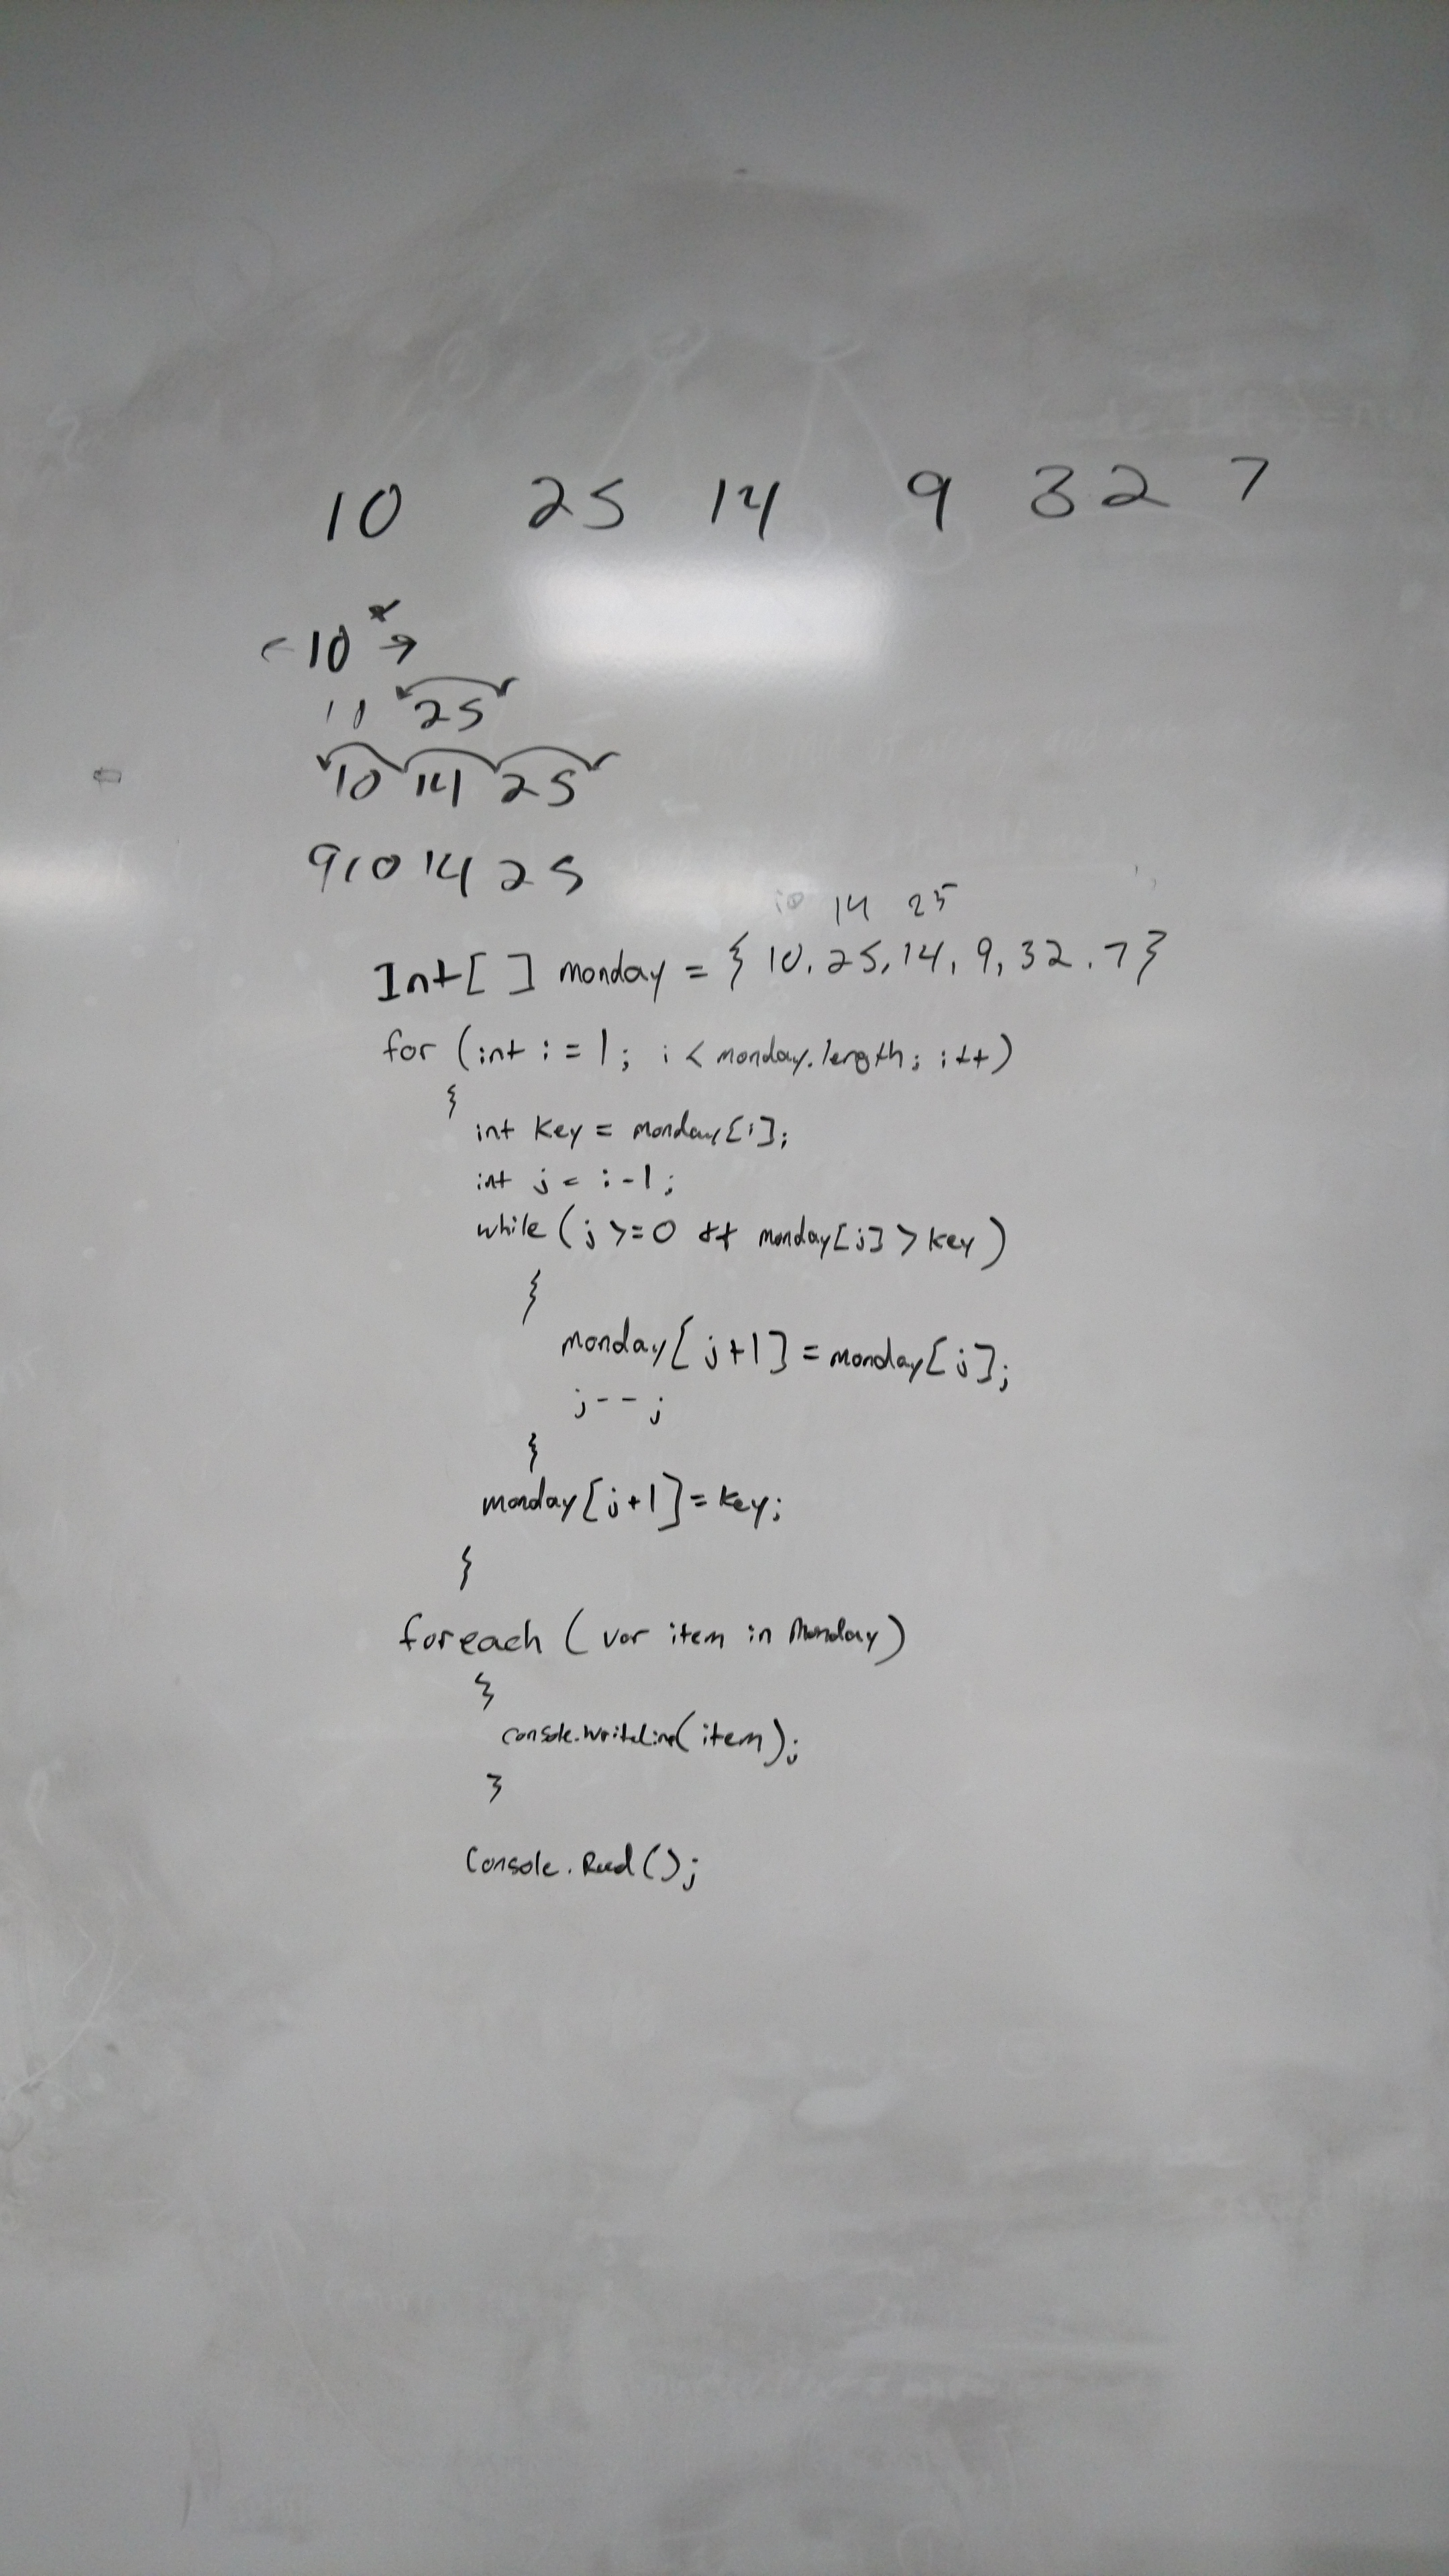 10 25 14 9 32 7
10
11 25
10 14 25
9 10 14 25
10 14 25
Int[ ] monday = { 10, 25, 14, 9, 32, 7 }
for (int i = 1; i < monday.length; i++)
{
int key = monday[i];
int j = i - 1;
while (j >= 0 && monday[j] > key)
{
monday[j+1] = monday[j];
j--;
}
monday[j+1] = key;
}
foreach (var item in Monday)
{
console.writeLine(item);
}
Console.Read();